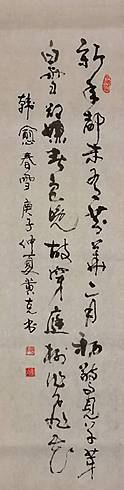 新年都未有芳華二月初驚見草芽
白雪却嫌春色晚故穿庭樹作飛花
韓愈春雪庚子仲夏黄克书